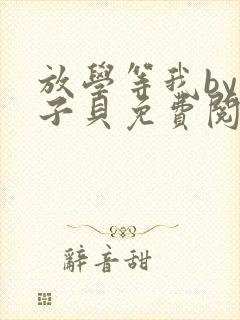 放學等我by
子貝免費閱
辭音甜